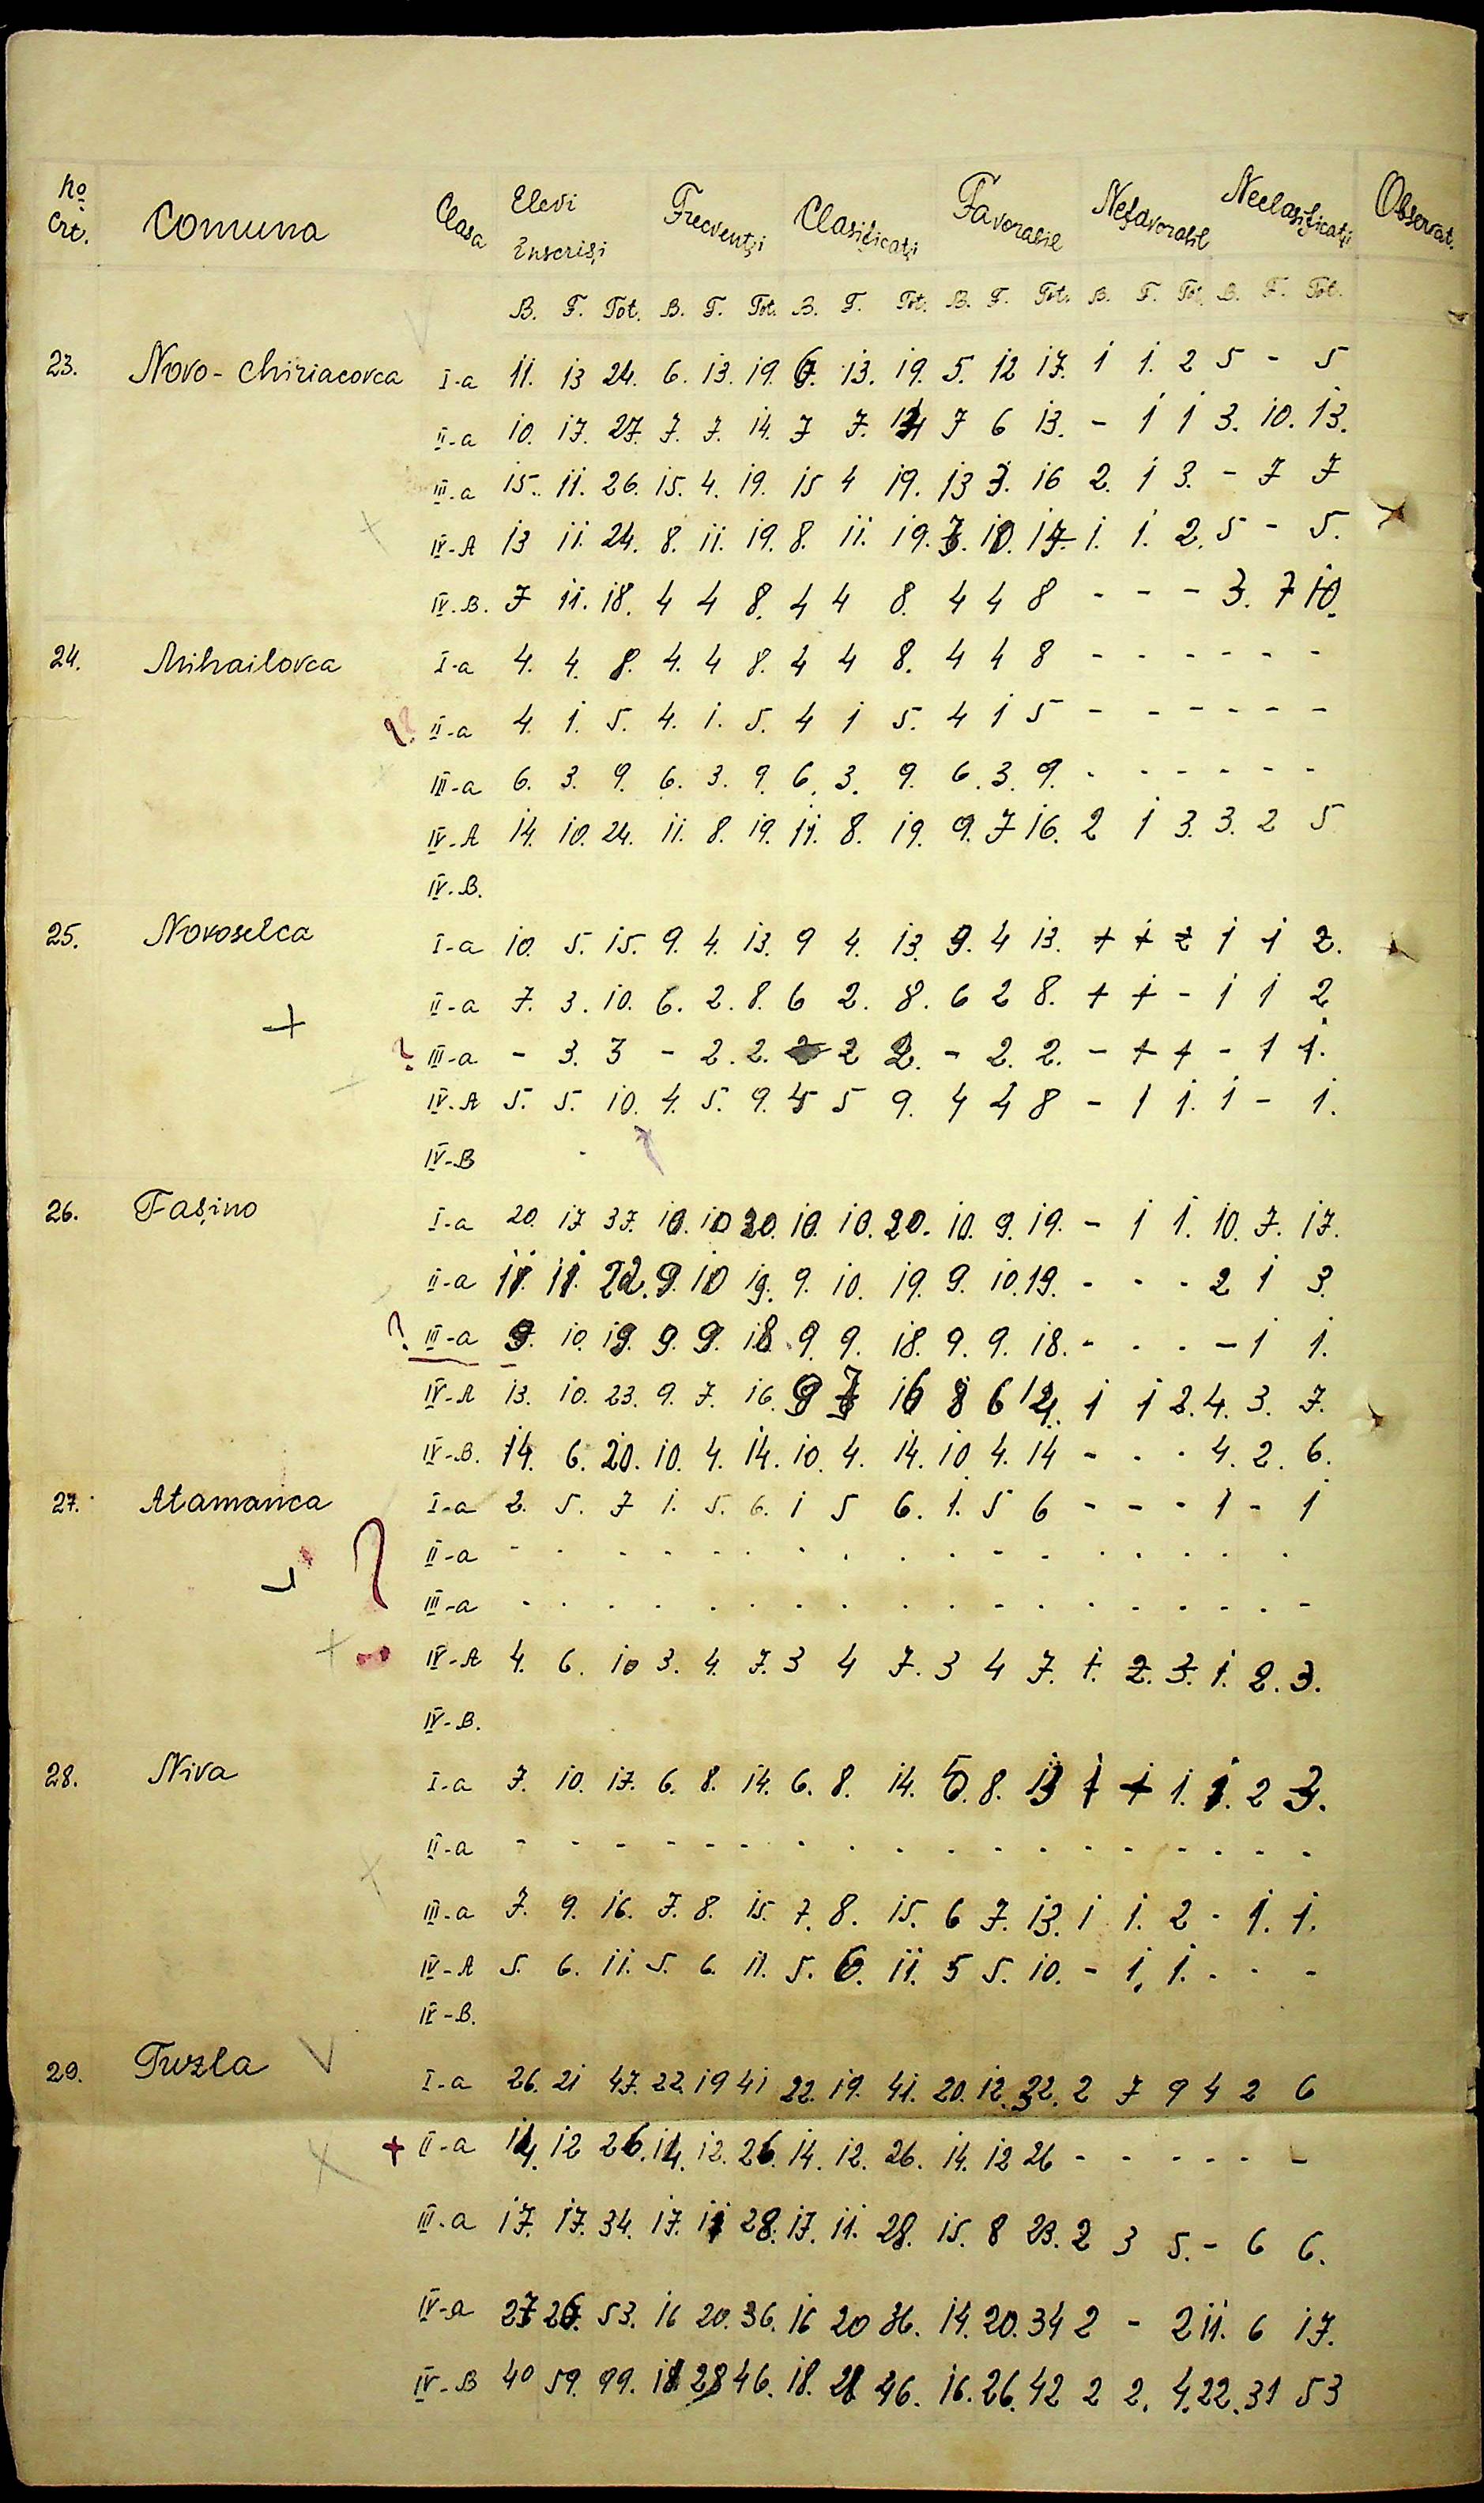 No Crt. Comuna Clasa Elevi Inscrişi Frecvenţi Clasificaţi Favorabil Nefavorabil Neclasificaţi Observat.
B. F. Tot. B. F. Tot. B. F. Tot. B. F. Tot. B. F. Tot. B. F. Tot.
23. Novo-Chiriacovca I-a 11. 13 24. 6. 13. 19. 6. 13. 19. 5. 12 17. 1 1. 2 5 - 5
II-a 10. 17. 27. 7. 7. 14. 7 7. 14 7 6 13. - 1 1 3. 10. 13.
III-a 15. 11. 26. 15. 4. 19. 15 4 19. 13 3. 16 2. 1 3. - 7 7
IV-A 13 11. 24. 8. 11. 19. 8. 11. 19. 7. 10. 17. 1. 1. 2. 5 - 5.
IV.B. 7 11. 18. 4 4 8. 4 4 8. 4 4 8 - - - 3. 7 10.
24. Mihailovca I-a 4. 4. 8. 4. 4 8. 4 4 8. 4 4 8 - - - - - -
II-a 4. 1. 5. 4. 1. 5. 4 1 5. 4 1 5 - - - - - -
III-a 6. 3. 9. 6. 3. 9. 6. 3. 9. 6. 3. 9. - - - - - -
IV-A 14. 10. 24. 11. 8. 19. 11. 8. 19. 9. 7 16. 2 1 3. 3. 2 5
IV.B.
25. Novoselca I-a 10. 5. 15. 9. 4. 13. 9 4. 13. 9. 4 13. 1 1 2 1 1 2.
II-a 7. 3. 10. 6. 2. 8. 6 2. 8. 6 2 8. 1 1 - 1 1 2
? III-a - 3. 3 - 2. 2. 2 2. - 2. 2. - 1 1 - 1 1.
IV-A 5. 5. 10. 4. 5. 9. 4 5 9. 4 4 8 - 1 1. 1 - 1.
IV-B
26. Faşino I-a 20. 17 37. 10. 10 20. 10. 10. 20. 10. 9. 19. - 1 1. 10. 7. 17.
II-a 11. 11. 22. 9. 10 19. 9. 10. 19. 9. 10. 19. - - - 2 1 3.
? III-a 9. 10. 19. 9. 9. 18. 9. 9. 18. 9. 9. 18. - - - - 1 1.
IV-A 13. 10. 23. 9. 7. 16. 9 7 16 8 6 14. 1 1 2. 4. 3. 7.
IV-B. 14. 6. 20. 10. 4. 14. 10. 4. 14. 10 4. 14 - - - 4. 2. 6.
27. Atamanca I-a 2. 5. 7 1. 5. 6. 1 5 6. 1. 5 6 - - - 1 - 1
? II-a - - - - - - - - - - - - - - - - - -
III-a - - - - - - - - - - - - - - - - - -
IV-A 4. 6. 10 3. 4. 7. 3 4 7. 3 4 7. 1. 2. 3. 1. 2. 3.
IV-B.
28. Niva I-a 7. 10. 17. 6. 8. 14. 6. 8. 14. 5. 8. 13 1 1 1. 1. 2 3.
II-a - - - - - - - - - - - - - - - - - -
III-a 7. 9. 16. 7. 8. 15. 7. 8. 15. 6 7. 13. 1 1. 2 - 1. 1.
IV-A 5. 6. 11. 5. 6. 11. 5. 6. 11. 5 5. 10. - 1. 1. - - -
IV-B.
29. Tuzla I-a 26. 21 47. 22. 19 41 22. 19. 41. 20. 12. 32. 2 7 9 4 2 6
II-a 14. 12 26. 14. 12. 26. 14. 12. 26. 14. 12 26 - - - - - -
III-a 17. 17. 34. 17. 11 28. 17. 11. 28. 15. 8 23. 2 3 5. - 6 6.
IV-a 27 26. 53. 16 20. 36. 16 20 36. 14. 20. 34 2 - 2 11. 6 17.
IV-B 40 59. 99. 18 28 46. 18. 28 46. 16. 26. 42 2 2. 4. 22. 31 53